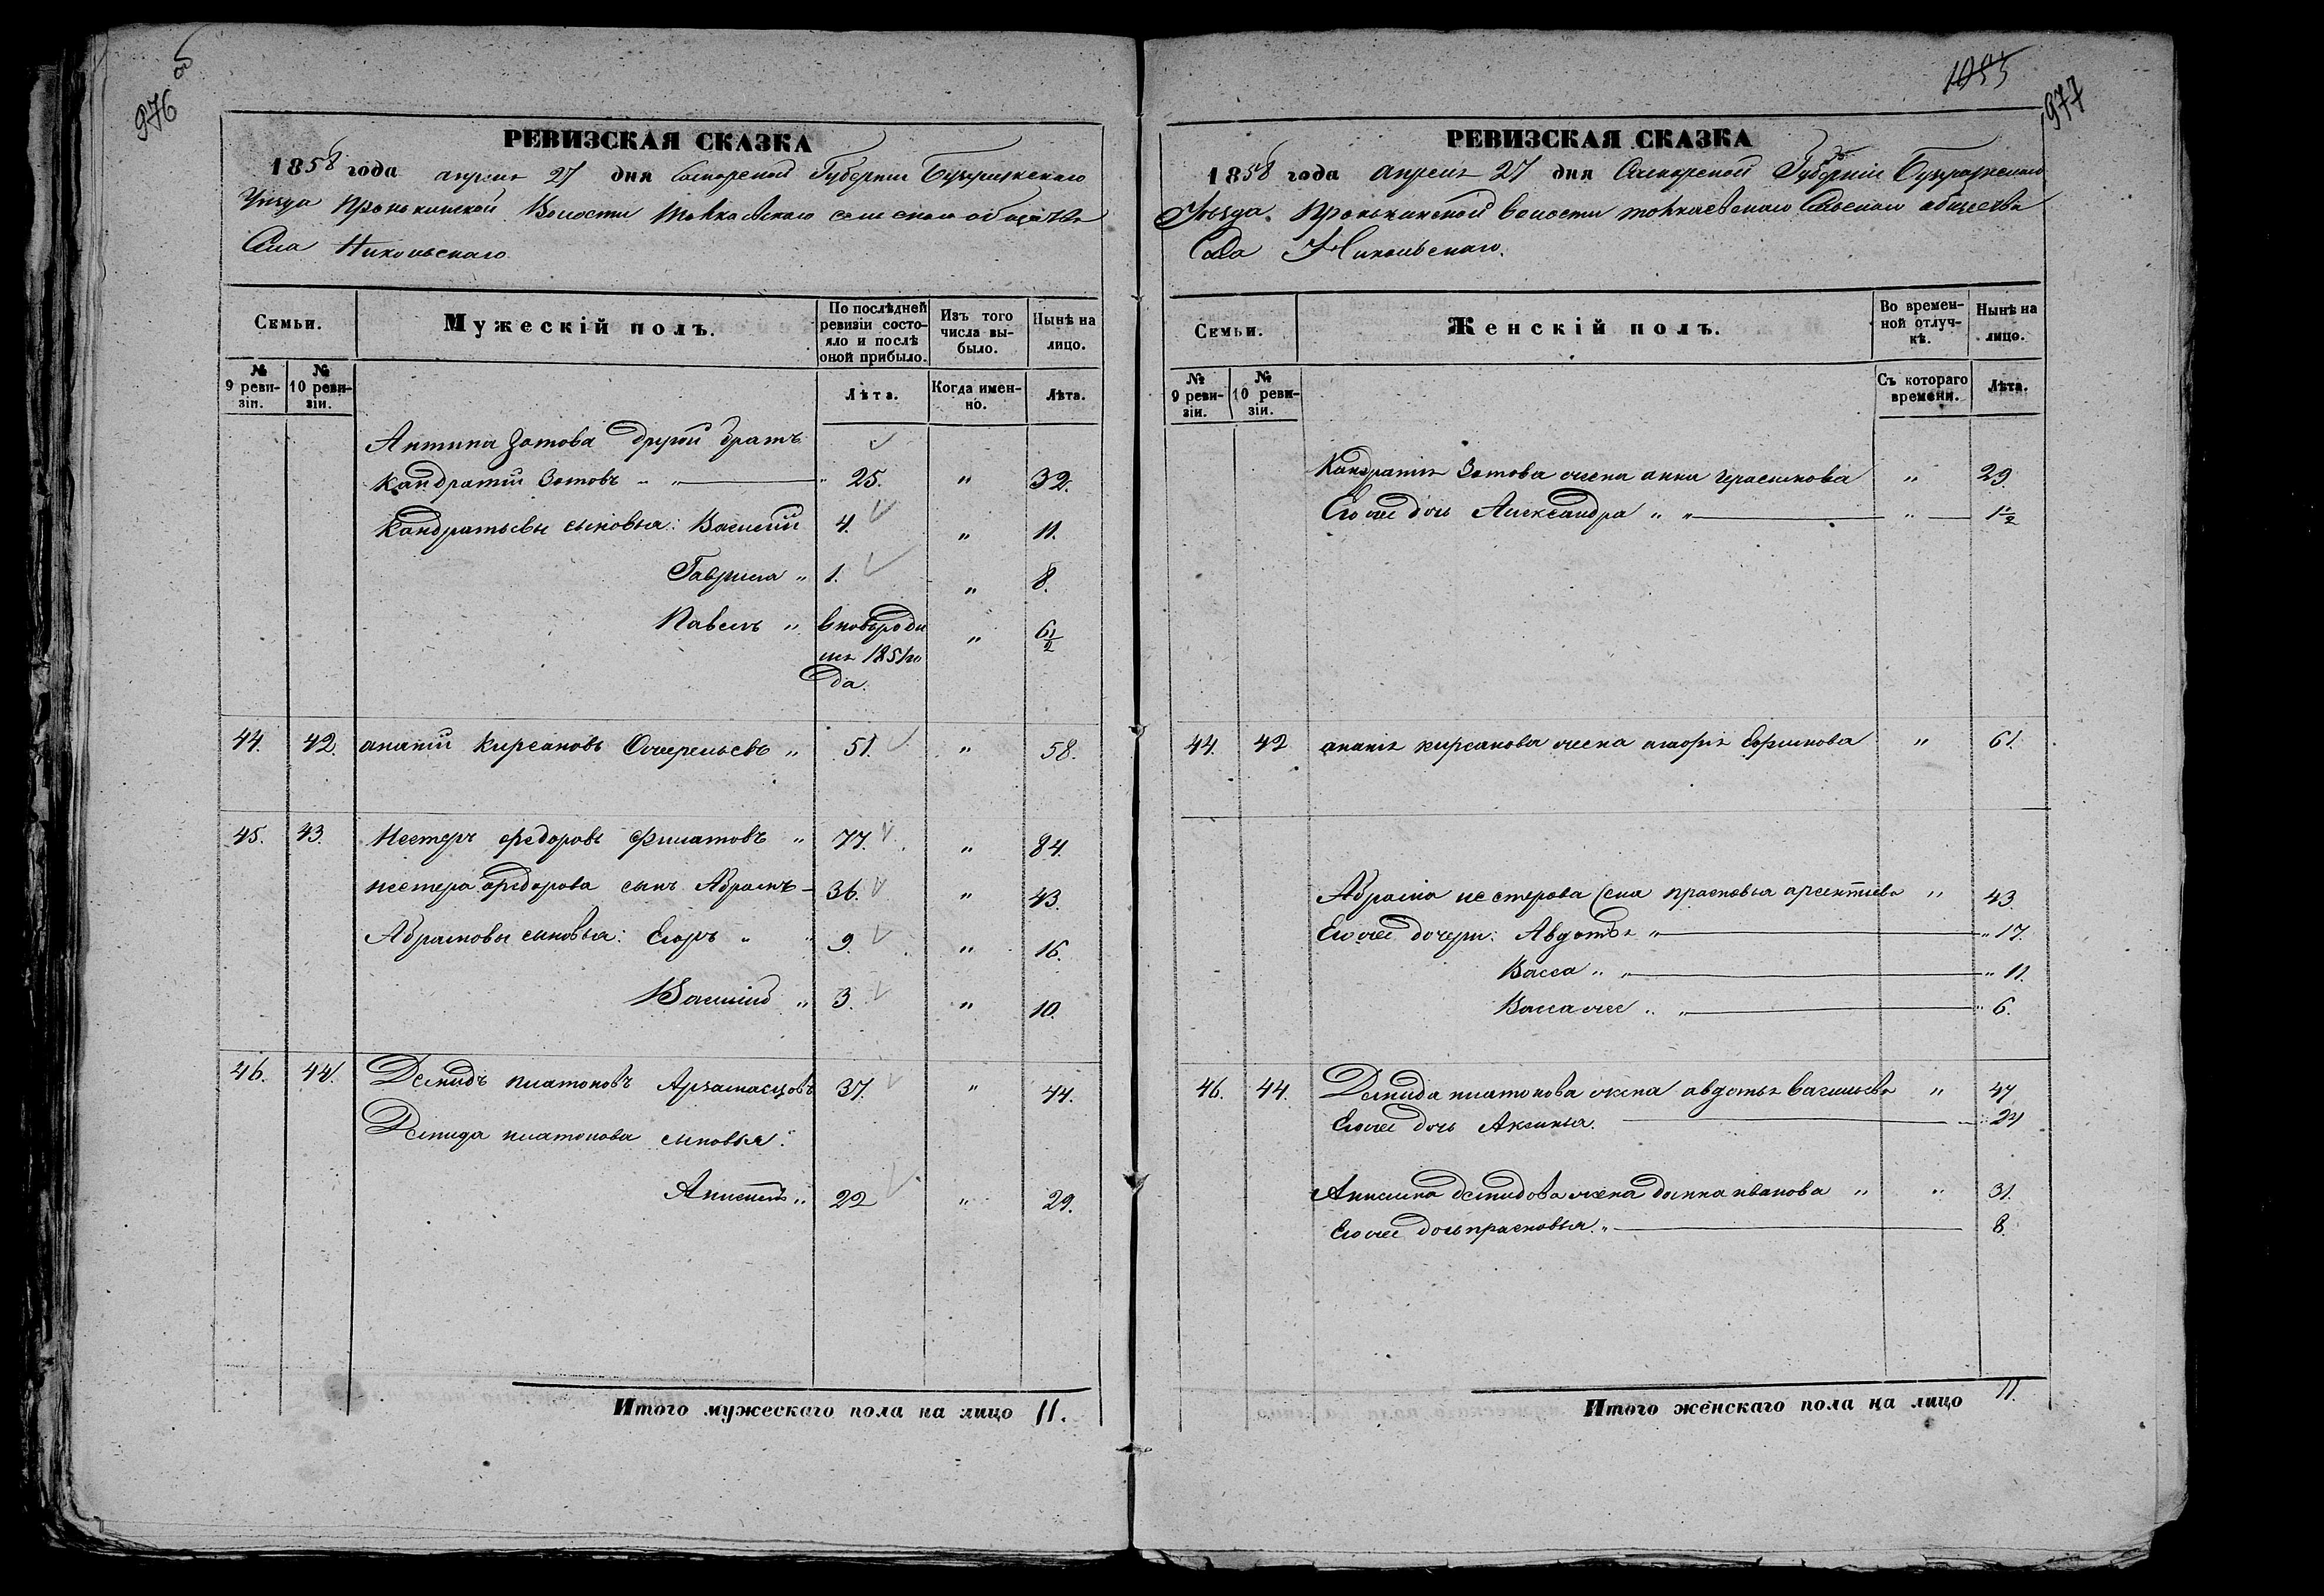 976 об
РЕВИЗСКАЯ СКАЗКА
1858 года апреля 27 дня Самарской Губернии Бузулукскаго
Уезда Пронькинской Волости Толкаевскаго сельскаго общества
Села Никольскаго
Семьи.
Мужескій полъ.
По послѣдней ревизіи состояло и послѣ оной прибыло.
Изъ того числа выбыло.
Нынѣ на лицо.
№ 9 ревизіи.
№ 10 ревизіи.
Лѣта.
Когда именно.
Лѣта.
Антипа Зотова другой братъ
Кандратій Зотовъ 25. " 32.
Кандратьевы сыновья: Василій 4. " 11.
Гаврила " 1. " 8.
Павелъ " вновьроди " 6½
лся 1851го
да.
44. 42. ананій Кирсановъ " 51. " 58.
45. 43. Нестеръ федоровъ Филатовъ " 77. " 84.
нестера федорова сынъ Абрамъ 36. " 43.
Абрамовы сыновья: Егоръ " 9. " 16.
Василій " 3. " 10.
46. 44. Демидъ платоновъ Арзамасцовъ 37. " 44.
Демида платонова сыновья:
Анисимъ " 22 " 29.
Итого мужескаго пола на лицо 11.
977
РЕВИЗСКАЯ СКАЗКА
1858 года апреля 27 дня Самарской Губерніи Бузулукскаго
Уѣзда. Пронькинской волости толкаевскаго Сельскаго общества
Села Никольскаго.
Семьи.
Женскій полъ.
Во временной отлучкѣ.
Нынѣ на лицо.
№ 9 ревизіи.
№ 10 ревизіи.
Съ котораго времени.
Лѣта.
Кандратія Зотова жена анна герасимова " 29.
Его же дочь Александра " " 1½
44. 42 ананія кирсанова жена Ефимова " 61.
Абрама нестерова жена прасковья арсентиева " 43.
Его же дочери: Авдотья " " 17.
Васса " " 11.
Васса же " " 6.
46. 44. Демида платонова жена авдотья васильева " 47
Его же дочь Аксинья. 24
Анисима демидова жена домна иванова " " 31.
Его же дочь прасковья. " 8.
Итого женскаго пола на лицо 11.